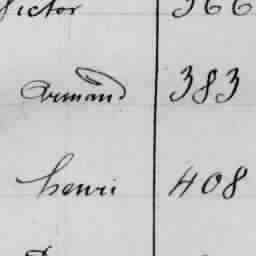 Victor 366
Armand 383
henri 408